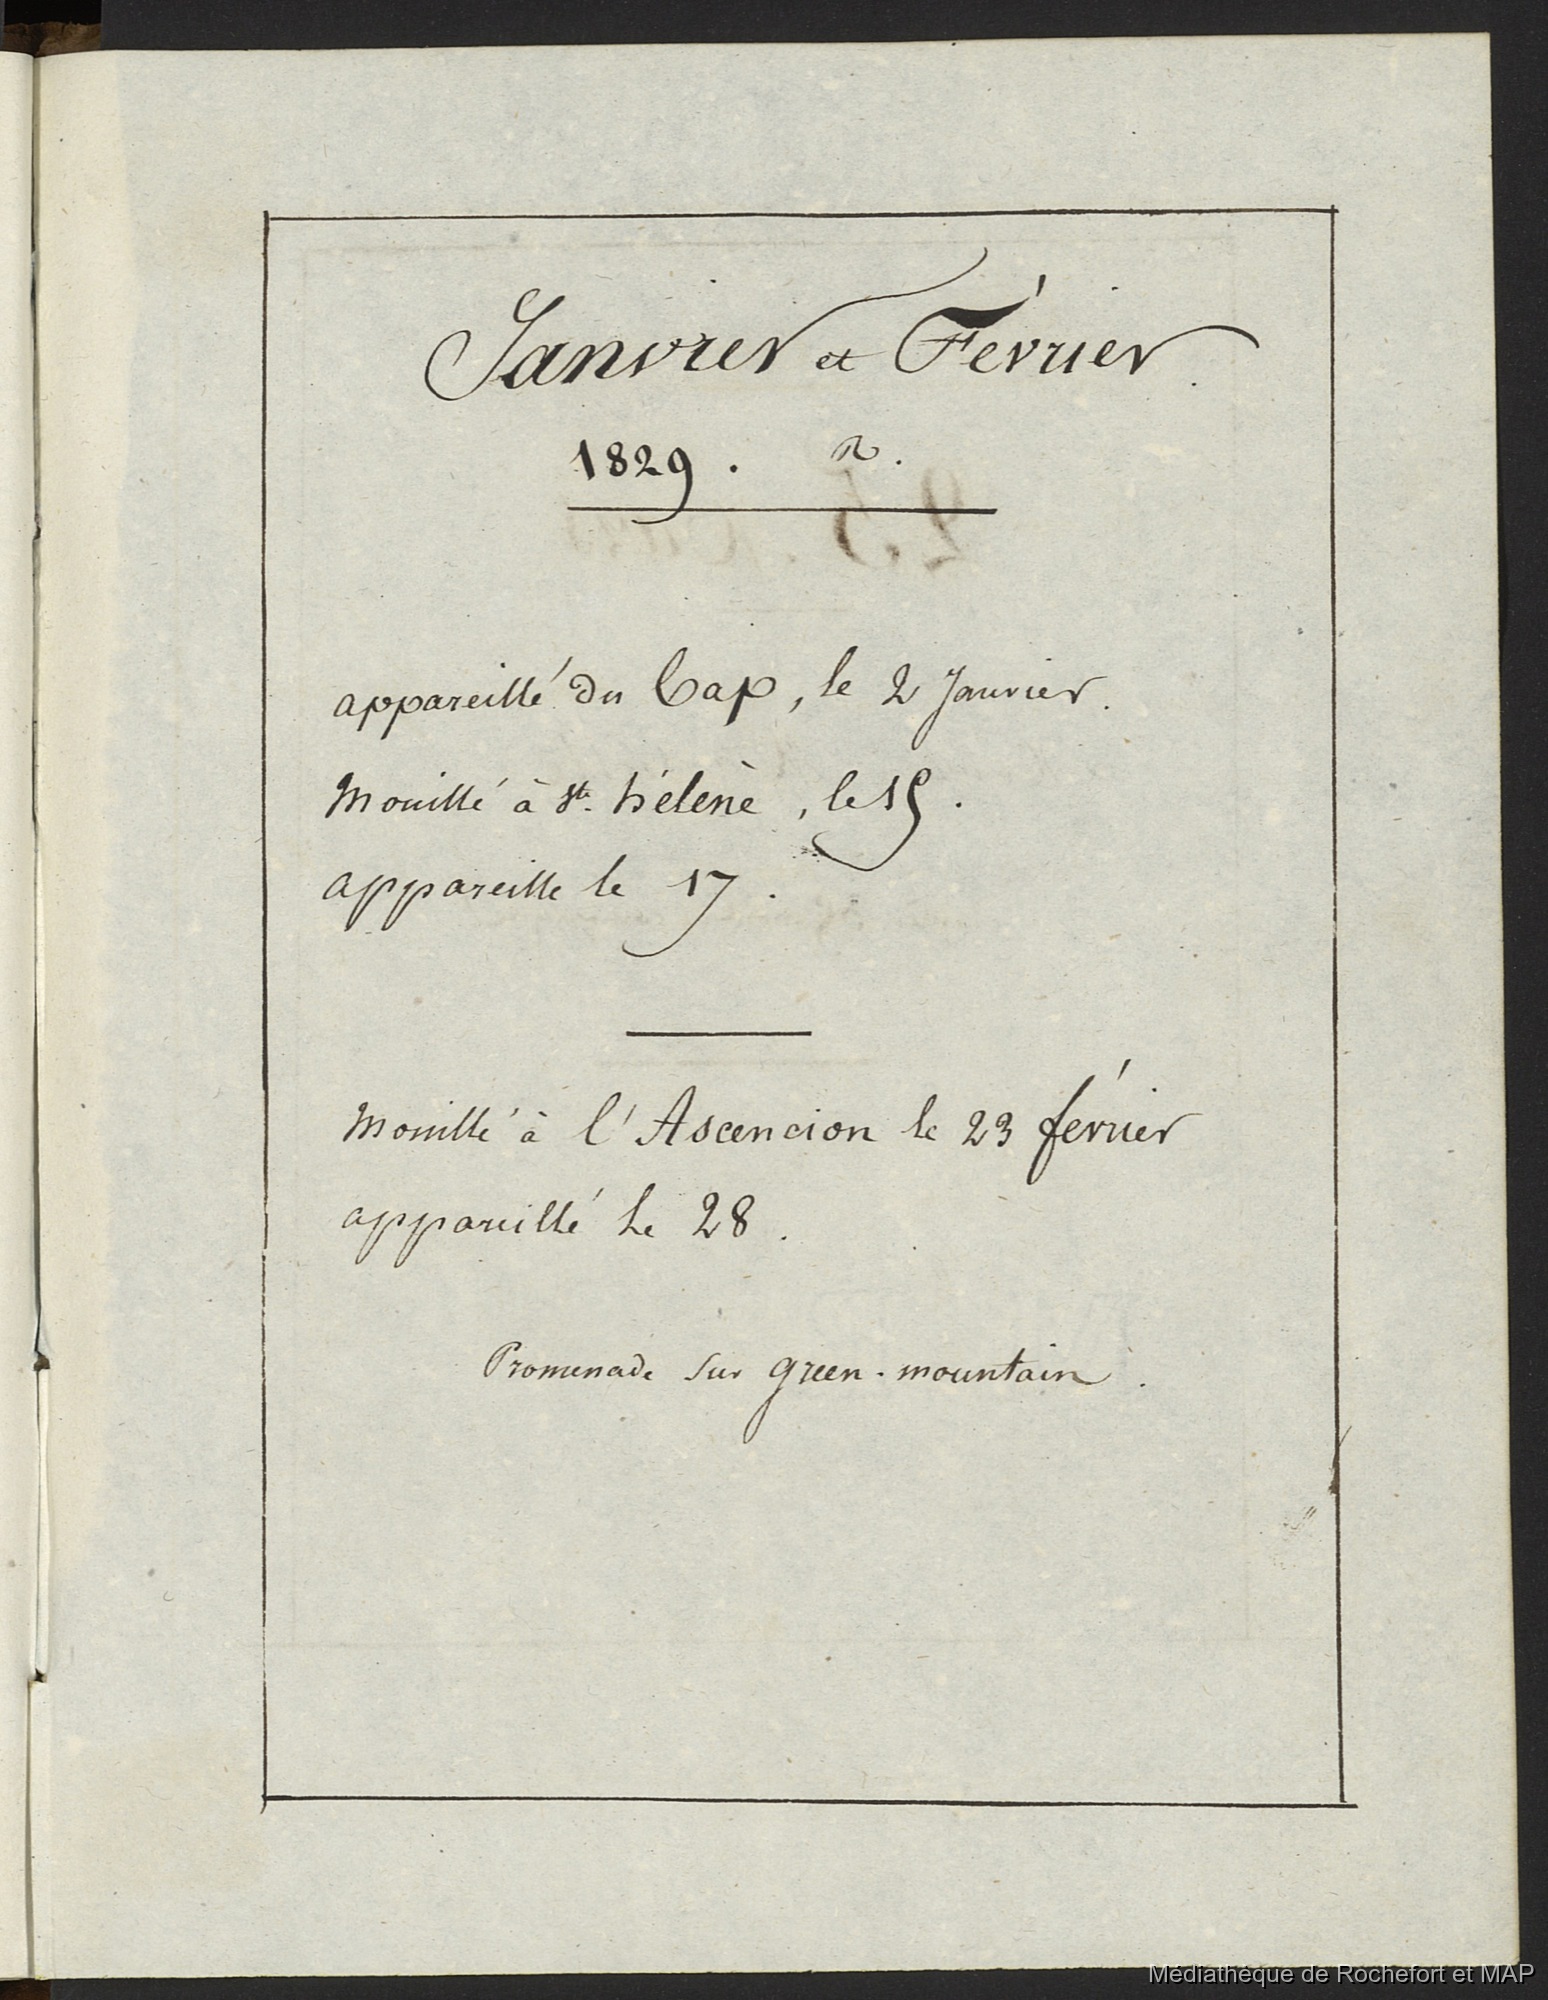 Janvier et Février
1829. R.
appareillé du Cap, le 2 Janvier.
Mouillé à Ste. hélène, le 15.
appareille le 17.
Mouillé à l'Ascencion le 23 février
appareillé le 28.
Promenade sur green-mountain.
Médiathèque de Rochefort et MAP